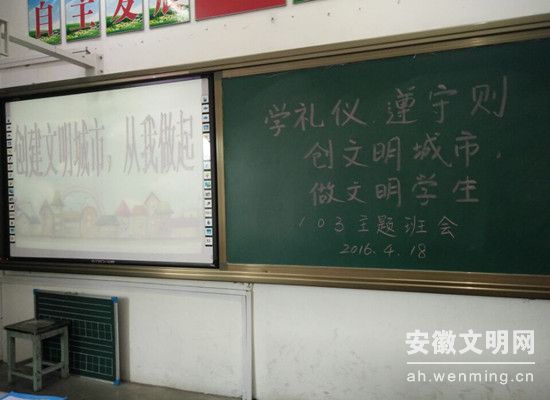 自主发展
创建文明城市，从我做起
学礼仪 遵守则
创文明城市，
做文明学生
103主题班会
2016.4.18
安徽文明网
ah.wenming.cn